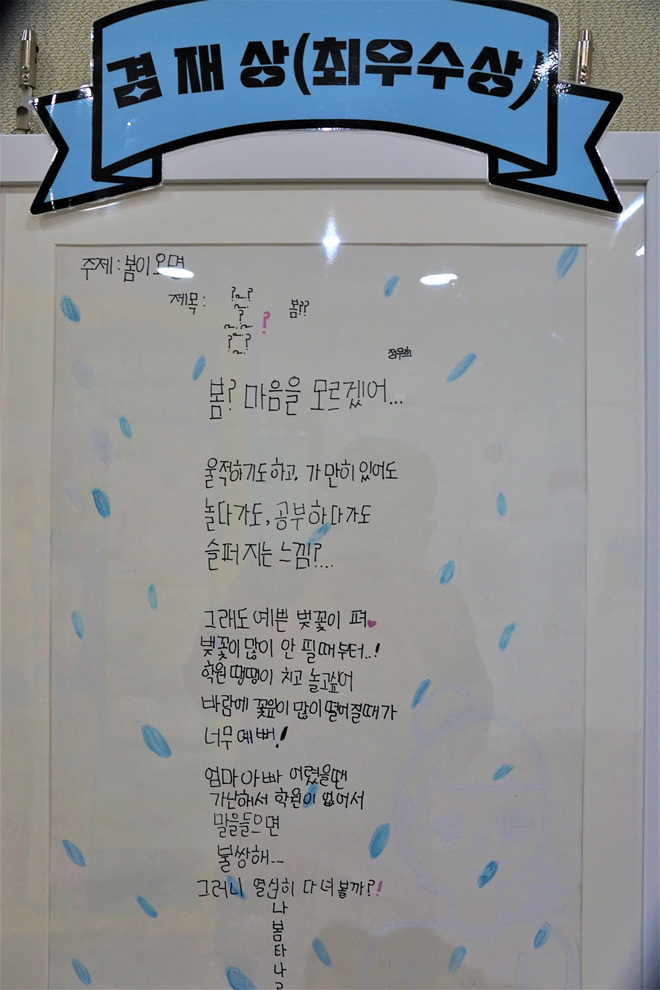 겸재상(최우수상)
주제: 봄이 오면
제목: ? 봄??
정우희
봄? 마음을 모르겠어...
울적하기도하고, 가만히 있어도
놀다가도, 공부하다가도
슬퍼지는 느낌?...
그래도 예쁜 벚꽃이 펴
벚꽃이 많이 안 필때부터..!
학원 땡땡이 치고 놀고싶어
바람에 꽃잎이 많이 떨어질때가
너무 예뻐!
엄마아빠 어렸을땐
가난해서 학원이 없어서
말을들으면
불쌍해...
그러니 열심히 다녀볼까?!
나
봄
타
나